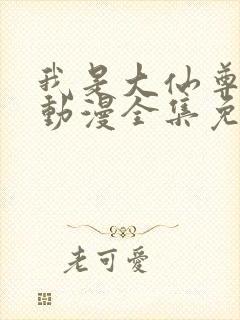 我是大仙尊
動漫全集免
老可愛